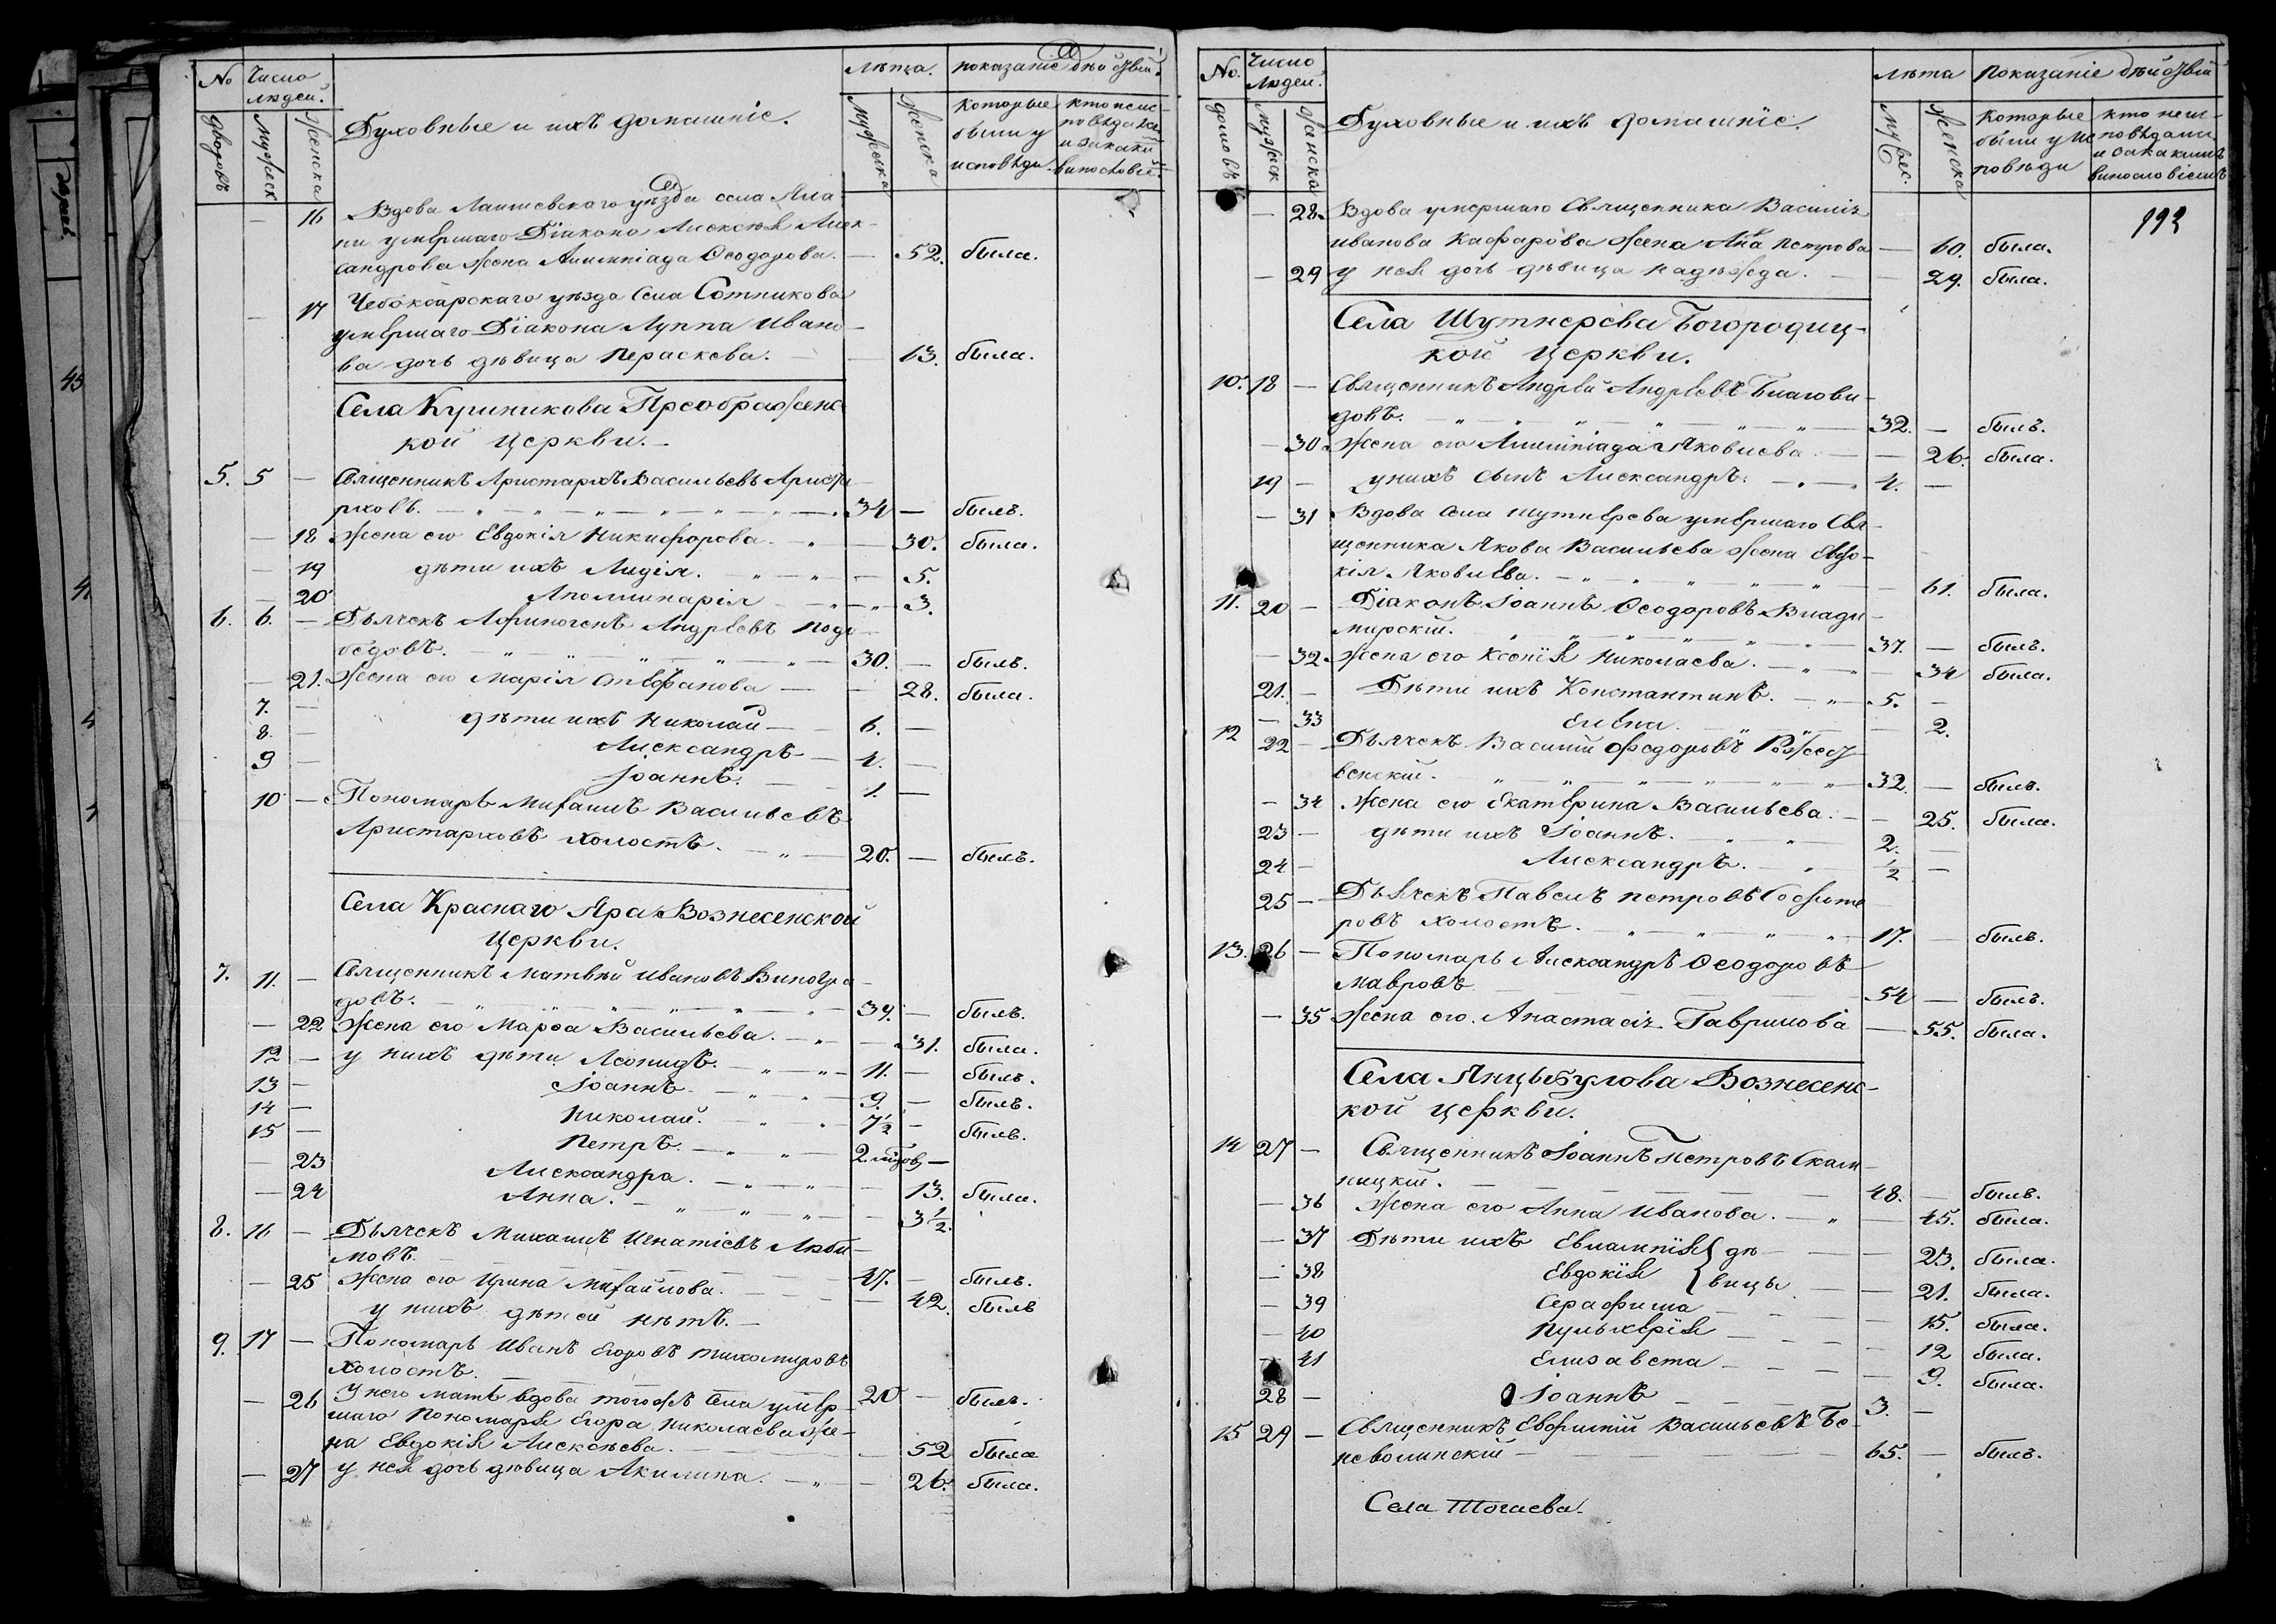 № Число людей. Лѣта. показаніе дѣйствій.
дворовъ Мужеск Женска Духовные и ихъ домашніе. Мужеска Женска которые были у исповѣди. кто неис-повѣдался и за какимъ винословіе.
— 16 Вдова Лаишевскаго уѣзда села
умершаго Діакона Алексѣя Алек-
сандрова жена Олимпіада Ѳеодорова. — 52. была.
— 17 Чебоксарскаго уѣзда Села Сотникова
умершаго Діакона Луппа Ивано-
ва дочь дѣвица Пераскева. — 13. была.
Села Кушникова Преображенс
кой церкви.
5. 5 — Священникъ Аристархъ Васильевъ Ариста
рховъ. 34 — былъ.
— 18 Жена его Евдокія Никифорова. — 30. была.
— 19 дѣти ихъ Лидія. — 5.
— 20 Аполлинарія — 3.
6. 6. — Дьячекъ Афиногенъ Андреевъ Подо
бѣдовъ. 30. — былъ.
— 21. Жена его Марія Стефанова — 28. была.
7. — дѣти ихъ Николай 6. —
8. — Александръ 4. —
9 — Іоаннъ. 1. —
10 — Пономарь Михаилъ Васильевъ
Аристарховъ холостъ. 20. — былъ.
Села Краснаго Яра Вознесенской
церкви.
7. 11. — Священникъ Матвѣй Ивановъ Виногра
довъ. 39. — былъ.
— 22 Жена его Марѳа Васильева. — 31. была.
12 — у нихъ дѣти Леонидъ. 11. — былъ.
13 — Іоаннъ. 9. — былъ.
14 — Николай. 7½ — былъ.
15 — Петръ. 2 —
— 23 Александра. — 13. была.
— 24 Анна. — 3½.
8. 16 — Дьячекъ Михаилъ Игнатіевъ Люби-
мовъ. 47. — былъ.
— 25 Жена его Ирина Михайлова. — 42. былъ
у нихъ дѣтей нѣтъ. —
9. 17 — Пономарь Иванъ Егоровъ Тихомировъ
холостъ. 20 — былъ.
— 26 У него мать вдова тогожъ села умер-
шаго Пономаря Егора Николаева же-
на Евдокія Алексѣева. — 52 была
— 27 у нея дочь дѣвица Акилина. — 26. была.
No. Число людей. лѣта показаніе дѣйствій
домовъ мужеск женска Духовные и ихъ домашніе. мужес. женска которые были у ис повѣди кто неис-повѣдали и за какимъ винословіемъ
192
— 28. Вдова умершаго Священника Василія
Иванова Кафарова жена Анна Петрова — 60. была.
— 29 у нея дочь дѣвица Надежда. — 29. была.
Села Шутнерева Богородиц-
кой церкви.
10. 18 — Священникъ Андрей Андреевъ Благови-
довъ. 32. — былъ.
— 30. Жена его Олимпіада Яковлева. — 26. была.
19 — у нихъ сынъ Александръ. 4. —
— 31 Вдова села Шутнерева умершаго Свя-
щенника Якова Васильева жена Евдо-
кія Яковлева. — 61. была.
11. 20 — Діаконъ Іоаннъ Ѳеодоровъ Влади-
мирскій. 37. — былъ.
— 32. Жена его Ксенія Николаева. — 34 была.
21. — Дѣти ихъ Константинъ. 5. —
— 33 Елена. — 2.
12 22 — Дьячекъ Василій Федоровъ Рождест
венскій. 32. — былъ.
— 34 Жена его Екатерина Васильева. — 25. была.
23 — дѣти ихъ Іоаннъ. 2. —
24 — Александръ. ½ —
25 — Дьячекъ Павелъ Петровъ
ровъ холостъ. 17. — былъ.
13. 26 — Пономарь Александръ Ѳеодоровъ
Мавровъ 54 — былъ.
— 35 Жена его. Анастасія Гаврилова — 55. была.
Села Янцыбулова Вознесенс-
кой церкви.
14 27 — Священникъ Іоаннъ Петровъ Скали-
ницкій. 48. — былъ.
— 36 Жена его Анна Иванова. — 45. была.
— 37 Дѣти ихъ Евлампія { дѣ — 23. была.
— 38 Евдокія { вицы — 21. была.
— 39 Серафима — 15. была.
— 40 Пульхерія — 12 была.
— 41 Елизавета — 9. была.
28 — Іоаннъ 3. —
15 29 — Священникъ Евфимій Васильевъ Бе-
неволинскій 65. — былъ.
Села Тогаева.